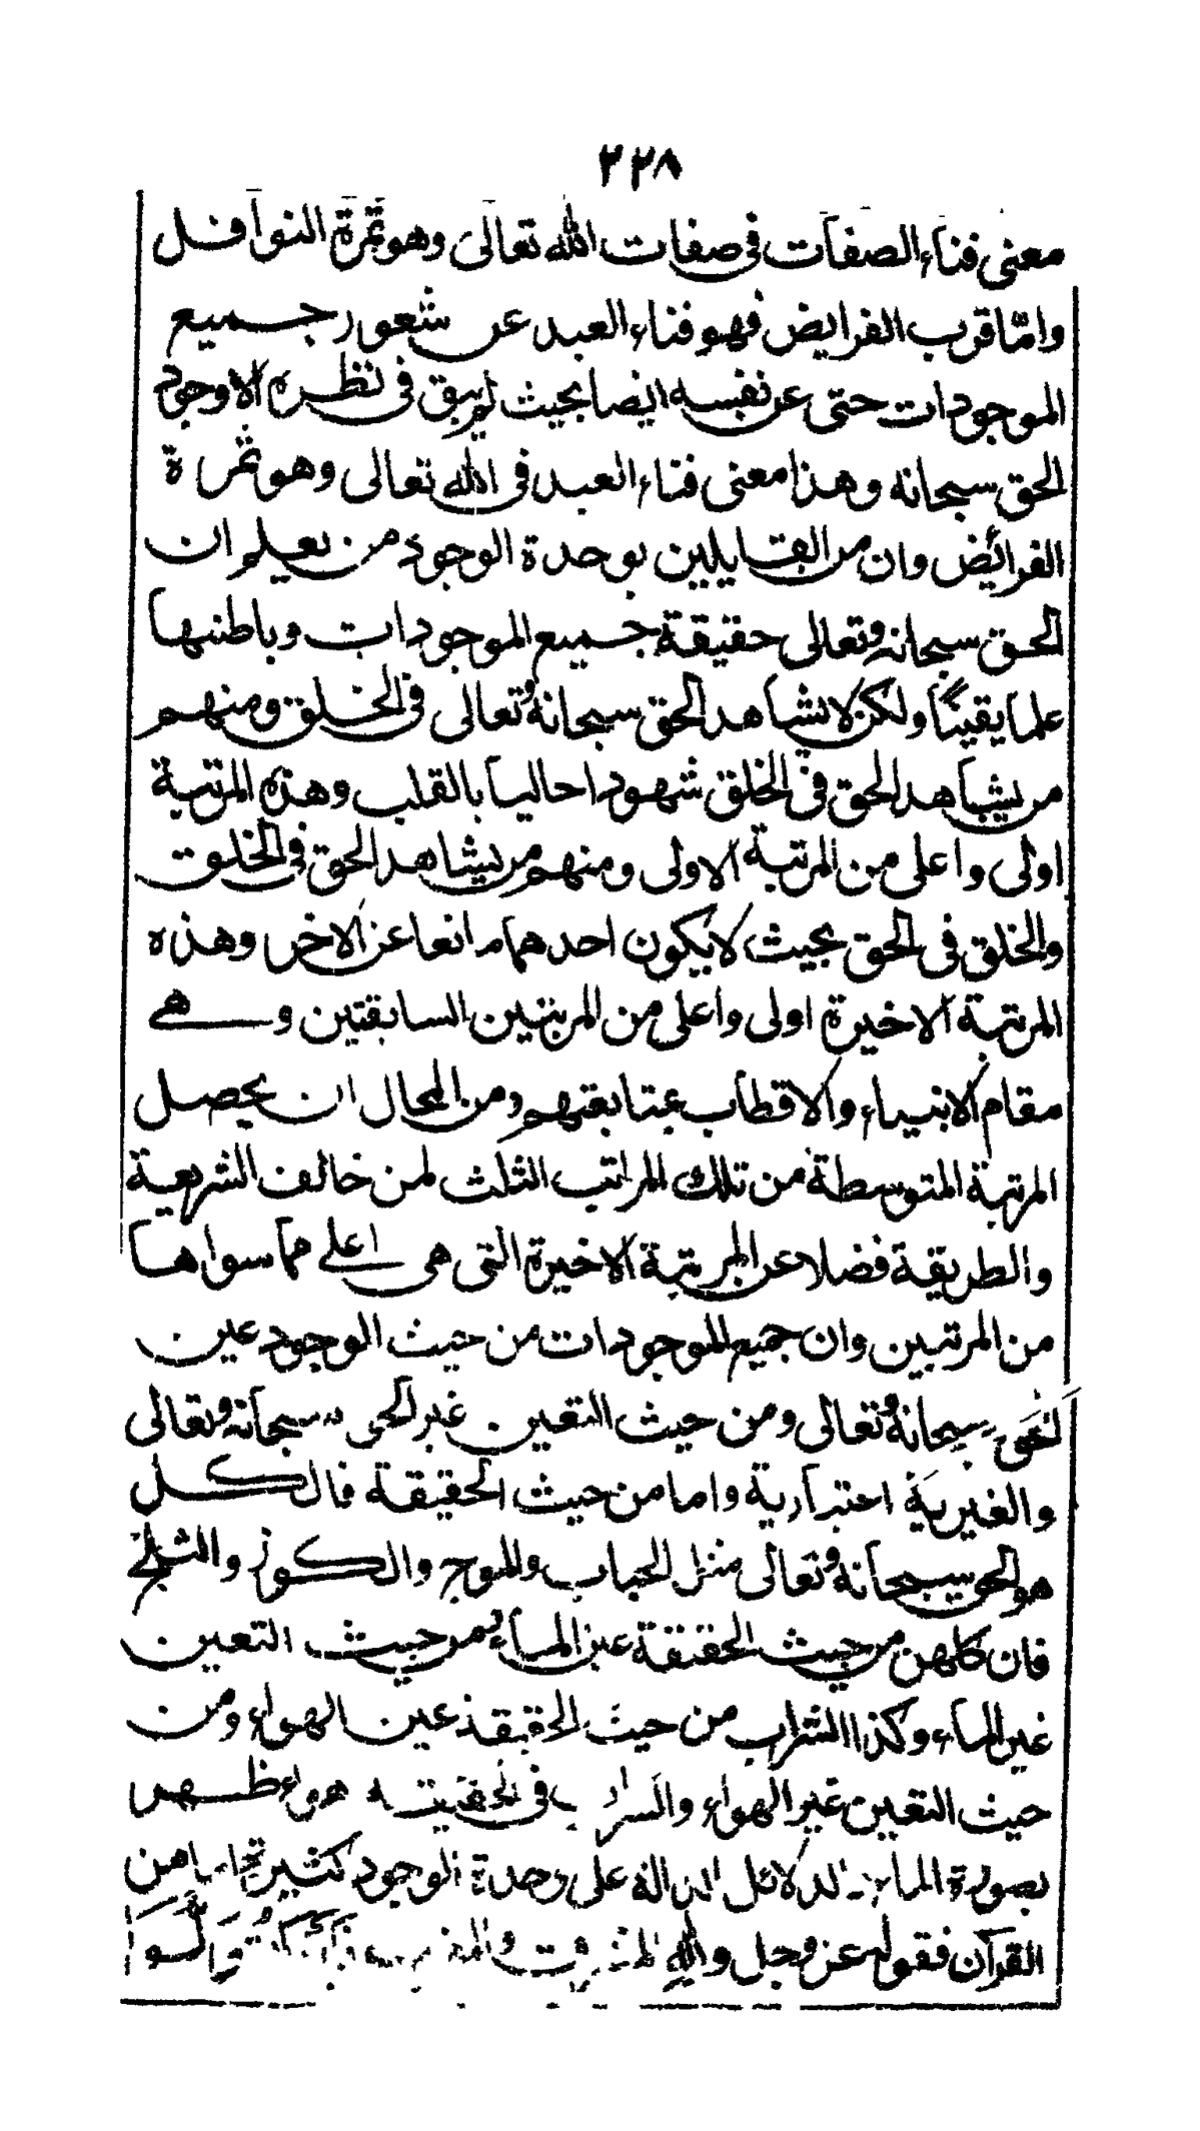 ٢٢٨
معنى فناء الصفات فى صفات الله تعالى وهو ثمرة النوافل
واما قرب الفرايض فهو فناء العبد عن شعور جميع
الموجودات حتى عن نفسه ايضا بحيث لم يبق فى نظره الا وجود
الحق سبحانه وهذا معنى فناء العبد فى الله تعالى وهو ثمرة
الفرائض وان من القايلين بوحدة الوجود من يعلم ان
الحق سبحانه وتعالى حقيقة جميع الموجودات وباطنها
علما يقينًا ولكن لا يشاهد الحق سبحانه وتعالى فى الخلق ومنهم
من يشاهد الحق فى الخلق شهودا حاليا بالقلب وهذه المرتبة
اولى واعلى من المرتبة الاولى ومنهم من يشاهد الحق فى الخلق
والخلق فى الحق بحيث لا يكون احدهما مانعا عن الاخر وهذه
المرتبة الاخيرة اولى واعلى من المرتبتين السابقتين وهى
مقام الانبياء والاقطاب بمتابعتهم ومن المحال ان يحصل
المرتبة المتوسطة من تلك المراتب الثلث لمن خالف الشريعة
والطريقة فضلا عن المرتبة الاخيرة التى هى اعلى مما سواها
من المرتبين وان جميع الموجودات من حيث الوجود عين
الحق سبحانه وتعالى ومن حيث التعين غير الحق سبحانه وتعالى
والغيرية اعتبارية واما من حيث الحقيقة فالكل
هو الحق سبحانه وتعالى مثل الحباب والموج والكوز والثلج
فان كلهن من حيث الحقيقة عين الماء ومن حيث التعين
غير الماء وكذا السراب من حيث الحقيقة عين الهواء ومن
حيث التعين غير الهواء والسراب فى الحقيقة هواء ظهر
بصورة الماء الدلائل الدالة على وحدة الوجود كثيرة اما من
القرآن فقوله عز وجل ولله المشرق والمغرب فاينما تولوا